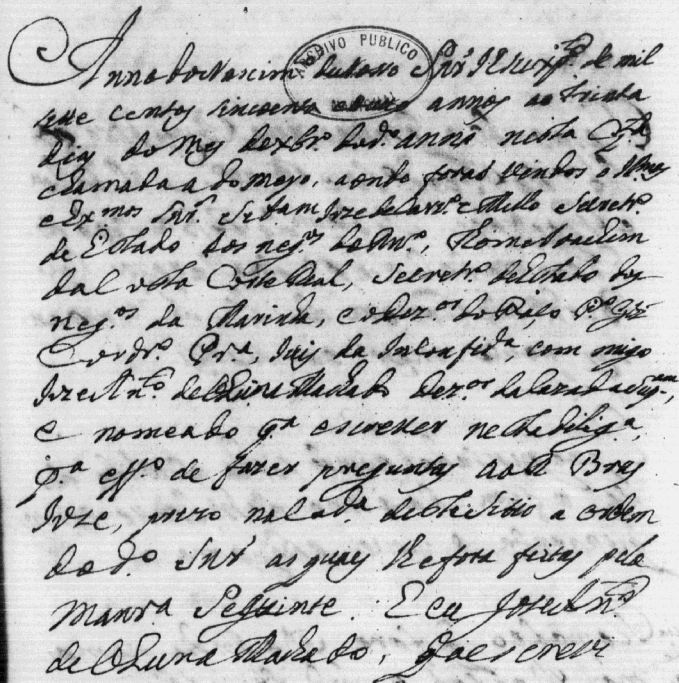 Anno do Nascim.to de Nosso Snr. Jesu Xp.o de mil
sete centos sincoenta e outo annos aos trinta
dias do Mes de xbr.o do d.o anno nesta Q.ta
chamada a do meyo, aonde foraõ vindos o Ill.mos
e Ex.mos Snr.s Sebam Joze de Carv.o e Mello Secretr.o
de Estado dos neg.os do Rn.o, Thome Joachim
da Costa Corte Real, Secretr.o de Estado dos
neg.os da Marinha, e o Dez.or do Paço P.o Glz
Cordr.o Pr.a, Juis da Inconfid.a, com migo
Joze An.to de Oliur.a Machado Dez.or da Caza da Sup.cam,
e nomeado p.a escrever nesta dilig.a,
p.a eff.o de fazer preguntas ao R Bras
Joze, prezo na Cad.a deste Sitio a ordem
do d.o Snr as quaes lhe foraõ feitas pela
Manr.a Seguinte. E eu Joze An.to
de Oliur.a Machado, q o escrevi
ARCHIVO PUBLICO